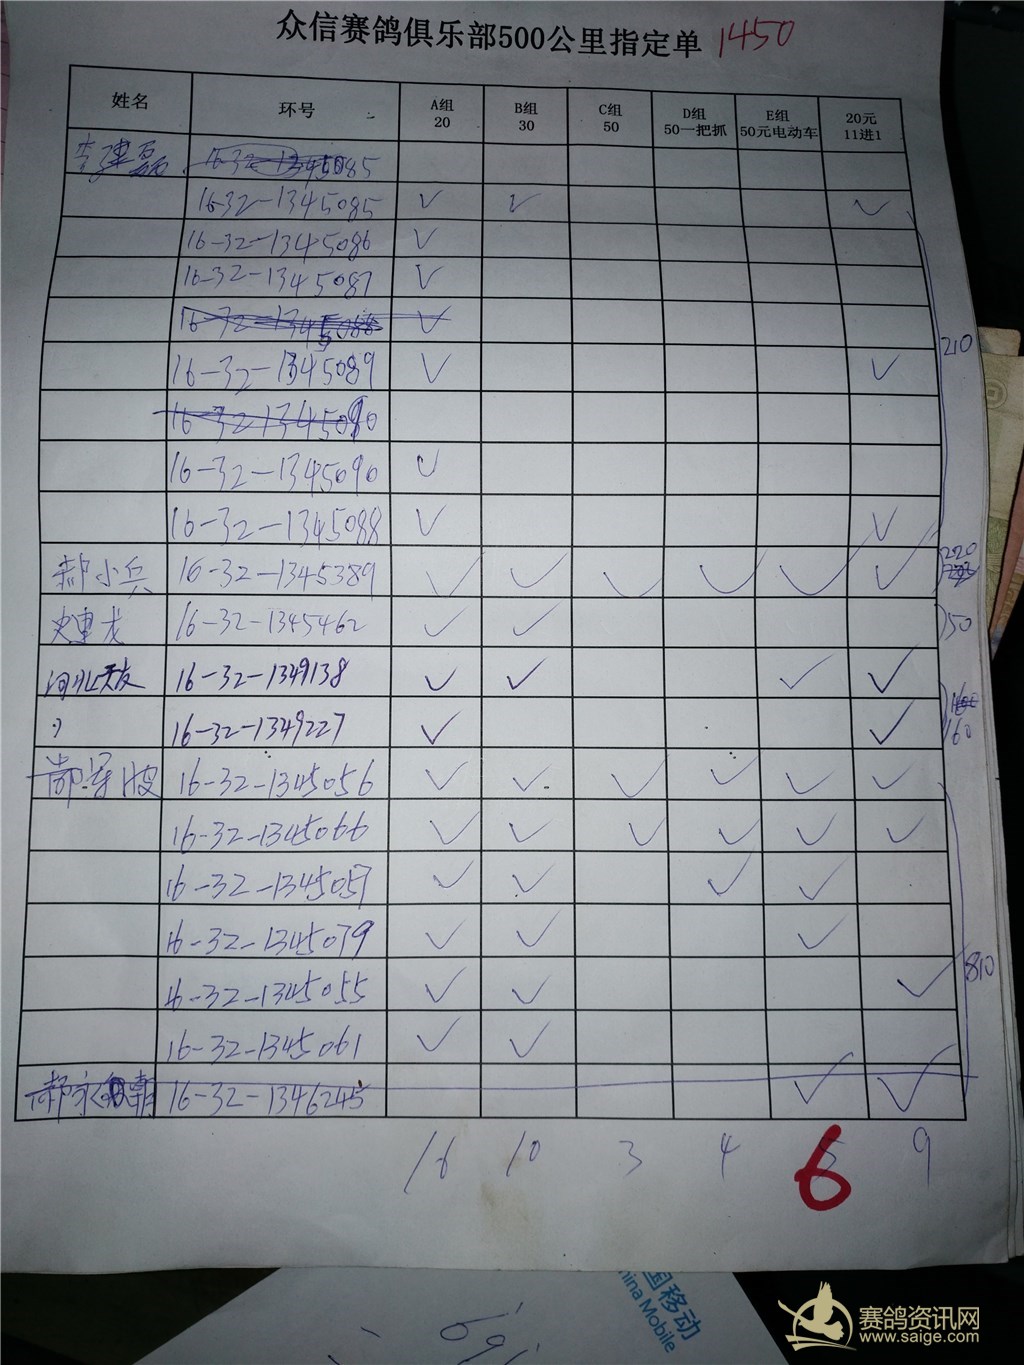 众信赛鸽俱乐部500公里指定单 1450
姓名 环号 A组 20 B组 30 C组 50 D组 50一把抓 E组 50元电动车 20元 11进1
李建磊 16-32-1345085
16-32-1345085 ✓ ✓ ✓
16-32-1345086 ✓
16-32-1345087 ✓
16-32-1345088 ✓
16-32-1345089 ✓ ✓
210
16-32-1345090
16-32-1345090 ✓
16-32-1345088 ✓ ✓
郝小兵 16-32-1345389 ✓ ✓ ✓ ✓ ✓ ✓ 220
史建龙 16-32-1345462 ✓ ✓ 50
河北天友 16-32-1349138 ✓ ✓ ✓ ✓
16-32-1349227 ✓ ✓ 160
郝军波 16-32-1345056 ✓ ✓ ✓ ✓ ✓ ✓
16-32-1345066 ✓ ✓ ✓ ✓ ✓ ✓
16-32-1345057 ✓ ✓ ✓ ✓
16-32-1345079 ✓ ✓ ✓
16-32-1345055 ✓ ✓ ✓ 810
16-32-1345061 ✓ ✓
郝永朝 16-32-1346245 ✓ ✓
16 10 3 4 6 9
国移动
China Mobile
赛鸽资讯网
www.saige.com